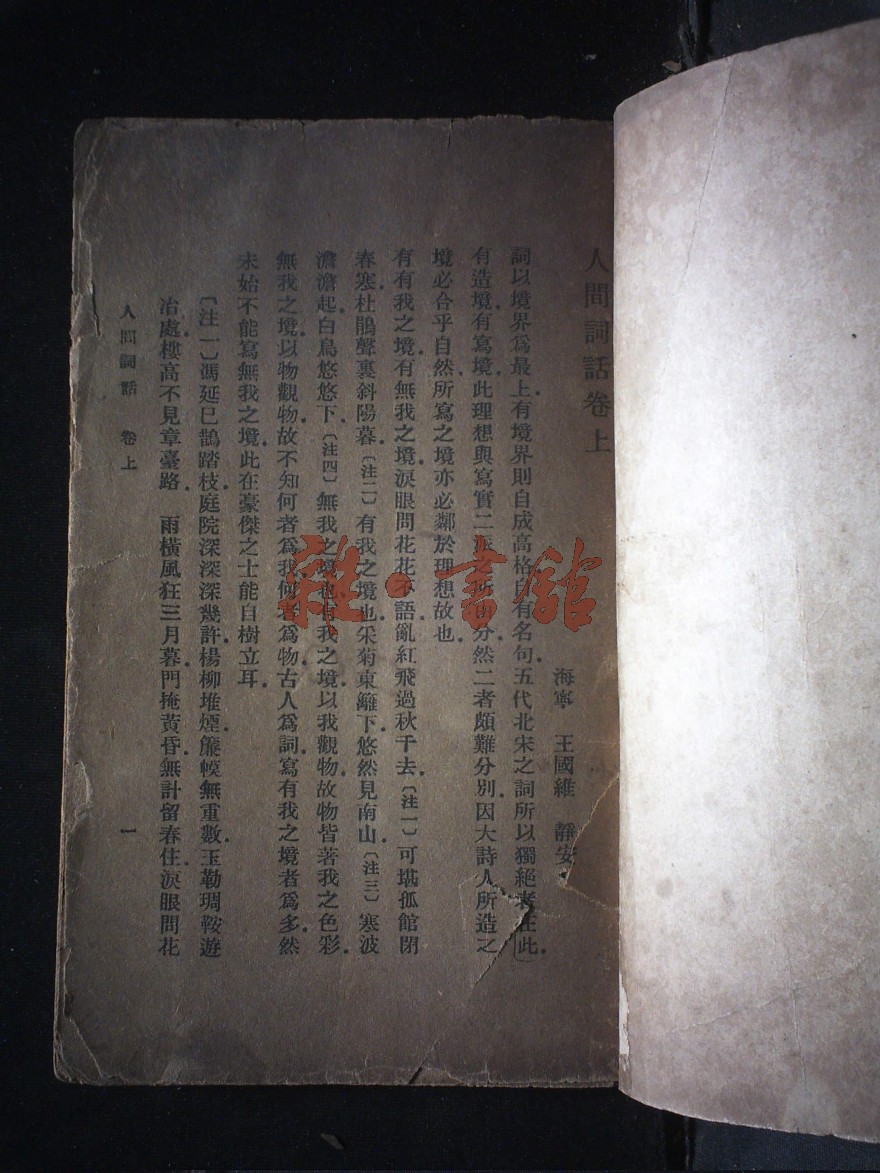 人間詞話卷上
海寧 王國維 靜安
詞以境界爲最上。有境界則自成高格。自有名句。五代北宋之詞所以獨絕者在此。
有造境。有寫境。此理想與寫實二派之所由分。然二者頗難分別。因大詩人所造之
境必合乎自然。所寫之境亦必鄰於理想故也。
有有我之境。有無我之境。淚眼問花花不語。亂紅飛過秋千去。〔注一〕可堪孤館閉
春寒。杜鵑聲裏斜陽暮。〔注二〕有我之境也。采菊東籬下。悠然見南山。〔注三〕寒波
澹澹起。白鳥悠悠下。〔注四〕無我之境也。有我之境。以我觀物。故物皆著我之色彩。
無我之境。以物觀物。故不知何者爲我。何者爲物。古人爲詞。寫有我之境者爲多。然
未始不能寫無我之境。此在豪傑之士能自樹立耳。
〔注一〕馮延巳鵲踏枝庭院深深深幾許。楊柳堆煙。簾幙無重數。玉勒琱鞍遊
冶處。樓高不見章臺路。 雨橫風狂三月暮。門掩黃昏。無計留春住。淚眼問花
人間詞話 卷上 一
雜·書館